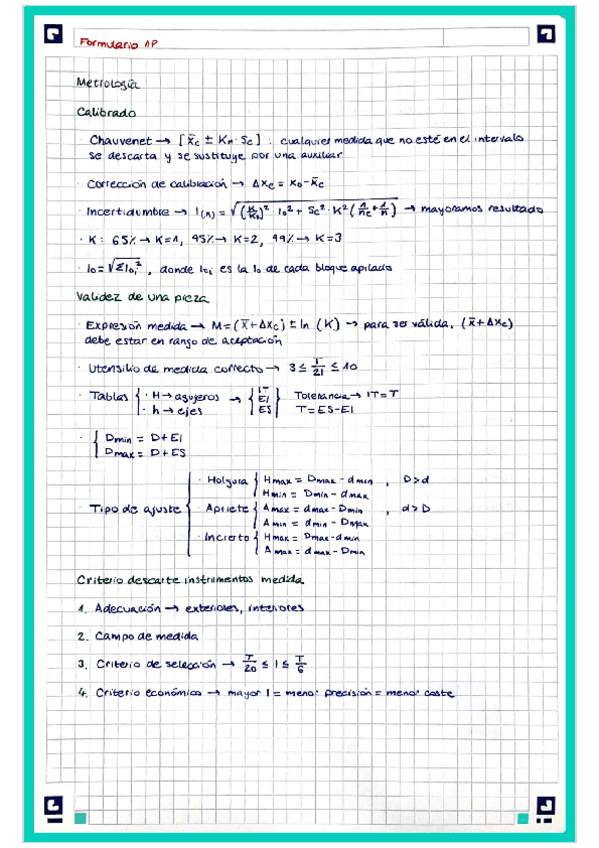 Formulario AP
Metrología
Calibrado
Chauvenet → [x̄c ± Kn · Sc] : cualquier medida que no esté en el intervalo
se descarta y se sustituye por una auxiliar
· Corrección de calibración → Δxc = x₀ - x̄c
· Incertidumbre → I(n) = √((K/K₀)² · I₀² + Sc² · K² (1/nc + 1/n)) → mayoramos resultado
· K: 65% → K=1, 95% → K=2, 99% → K=3
· I₀ = √ΣI₀ᵢ² , donde I₀ᵢ es la I₀ de cada bloque apilado
Validez de una pieza
· Expresión medida → M = (x̄ + Δxc) ± In (K) → para ser válida, (x̄ + Δxc)
debe estar en rango de aceptación
· Utensilio de medida correcto → 3 ≤ T/2I ≤ 10
· Tablas { · H → agujeros · h → ejes → { IT EI ES } Tolerancia → IT = T
T = ES - EI
· { Dmin = D + EI
Dmax = D + ES
· Tipo de ajuste { · Holgura { Hmax = Dmax - dmin , D > d
Hmin = Dmin - dmax
· Apriete { Amax = dmax - Dmin , d > D
Amin = dmin - Dmax
· Incierto { Hmax = Dmax - dmin
Amax = dmax - Dmin
Criterio descarte instrumentos medida
1. Adecuación → exteriores, interiores
2. Campo de medida
3. Criterio de selección → T/20 ≤ I ≤ T/6
4. Criterio económico → mayor I = menor precisión = menor coste